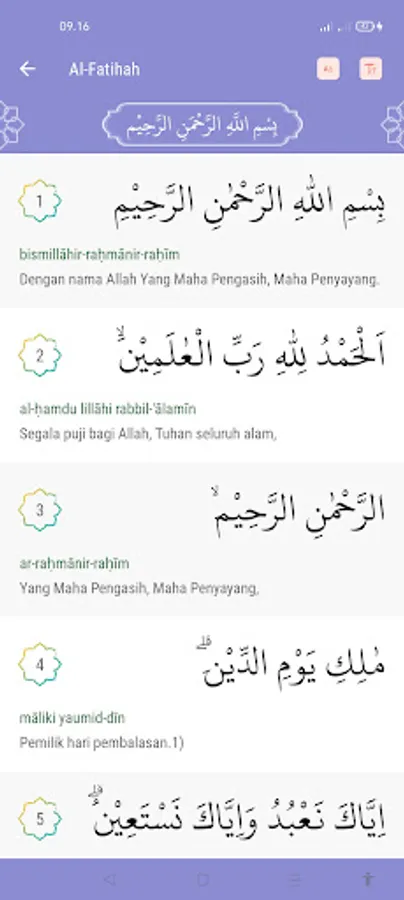 09.16
Al-Fatihah
بِسْمِ اللَّهِ الرَّحْمَنِ الرَّحِيْمِ
1
بِسْمِ اللّٰهِ الرَّحْمٰنِ الرَّحِيْمِ
bismillāhir-raḥmānir-raḥīm
Dengan nama Allah Yang Maha Pengasih, Maha Penyayang.
2
اَلْحَمْدُ لِلّٰهِ رَبِّ الْعٰلَمِيْنَۙ
al-ḥamdu lillāhi rabbil-'ālamīn
Segala puji bagi Allah, Tuhan seluruh alam,
3
الرَّحْمٰنِ الرَّحِيْمِۙ
ar-raḥmānir-raḥīm
Yang Maha Pengasih, Maha Penyayang,
4
مٰلِكِ يَوْمِ الدِّيْنِۗ
māliki yaumid-dīn
Pemilik hari pembalasan.1)
5
اِيَّاكَ نَعْبُدُ وَاِيَّاكَ نَسْتَعِيْنُۗ